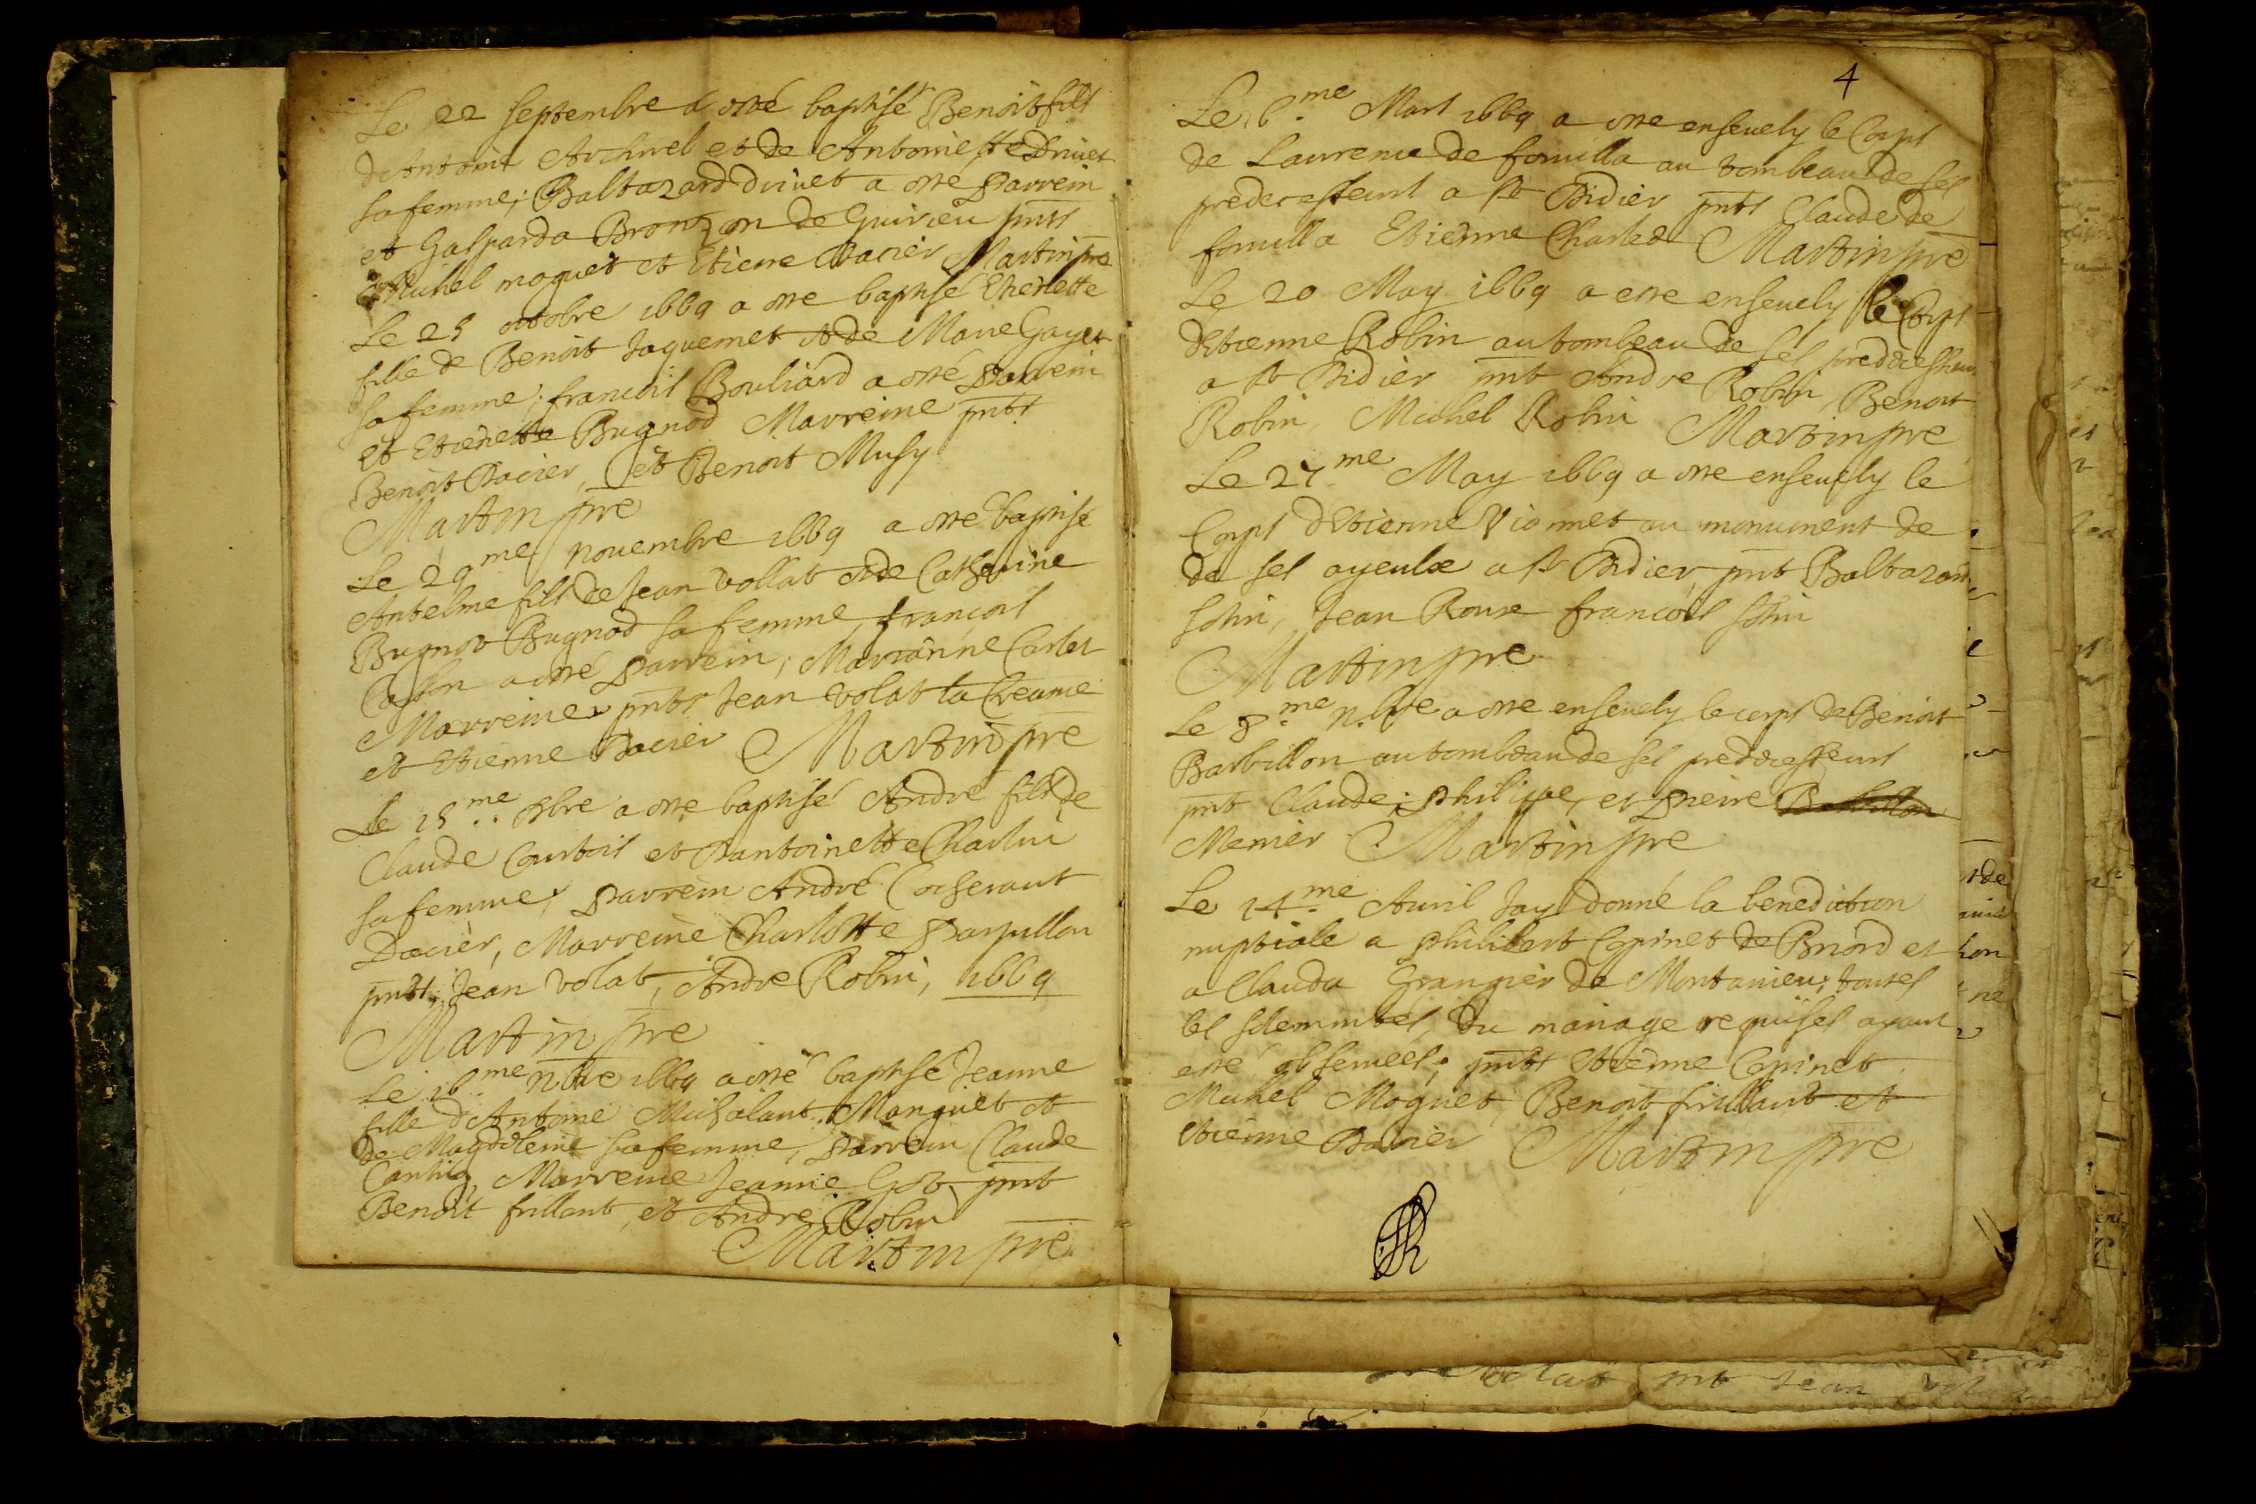 Le 22 septembre a esté baptisé Benoit fils
d'Antoine et de Antoinette Drivet
sa femme; Baltazard Drivet a esté Parrein
et Gasparda de Quirieu pnts
Michel moquet et Etiene Dacier Martin pre
Le 25 octobre 1669 a este baptisé Etienette
fille de Benoit Jaquemet et de Marie Gayet
sa femme; francois Bouliard a esté Parrein
et Etienette Bugnod Marreine pnts
Benoit Dacier, et Benoit Musy
Martin pre
Le 29me novembre 1669 a este baptisé
Antelme fils de Jean vollat et de Catherine
Bugnod sa femme, françois
a esté Parrein, Marianne Carlet
Marreine pnts Jean volat
et Etienne Dacier Martin pre
Le 15me a este baptisé André fils de
Claude Courtois et d'antoinette Charlin
sa femme, Parrein André
Dacier, Marreine Charlotte Papillon
pnts, Jean volat, Andre Robin, 1669
Martin pre
Le 16me 1669 a esté baptisé Jeanne
fille d'Antoine Monquet et
de Magdeleine sa femme, Parrein Claude
Marreine Jeanne pnt
Benoit frillant, et André Robin
Martin pre
4
Le 16.me Mars 1669 a este ensevely le Corps
de Laurence de au tombeau de ses
predecesseurs a St Didier pnts Claude de
Etienne Charles Martin pre
Le 20 May 1669 a este ensevely le Corps
d'Etienne Robin au tombeau de ses predecesseurs
a St Didier pnt Andre Robin, Benoit
Robin, Michel Robin Martin pre
Le 27me May 1669 a este ensevely le
Corps d'Etienne Vionnet au monument de
de ses ayeulx a St Didier, pnt Baltazard
Jean Roux françois
Martin pre
Le 8.me a este ensevely le corps de Benoit
Barbillon au tombeau de ses predecesseurs
pnt Claude; Philippe, et Pierre Barbillon
Menier Martin pre
Le 14.me Avril Jay donné la benediction
nuptiale a Philibert Copinet de Briord et
a Clauda Grangier de Montanieu; toutes
les solemnites du mariage requises ayant
esté observees; pnts Etienne Copinet
Michel Moquet, Benoit frillant et
Etienne Dacier Martin pre
volat pnt Jean